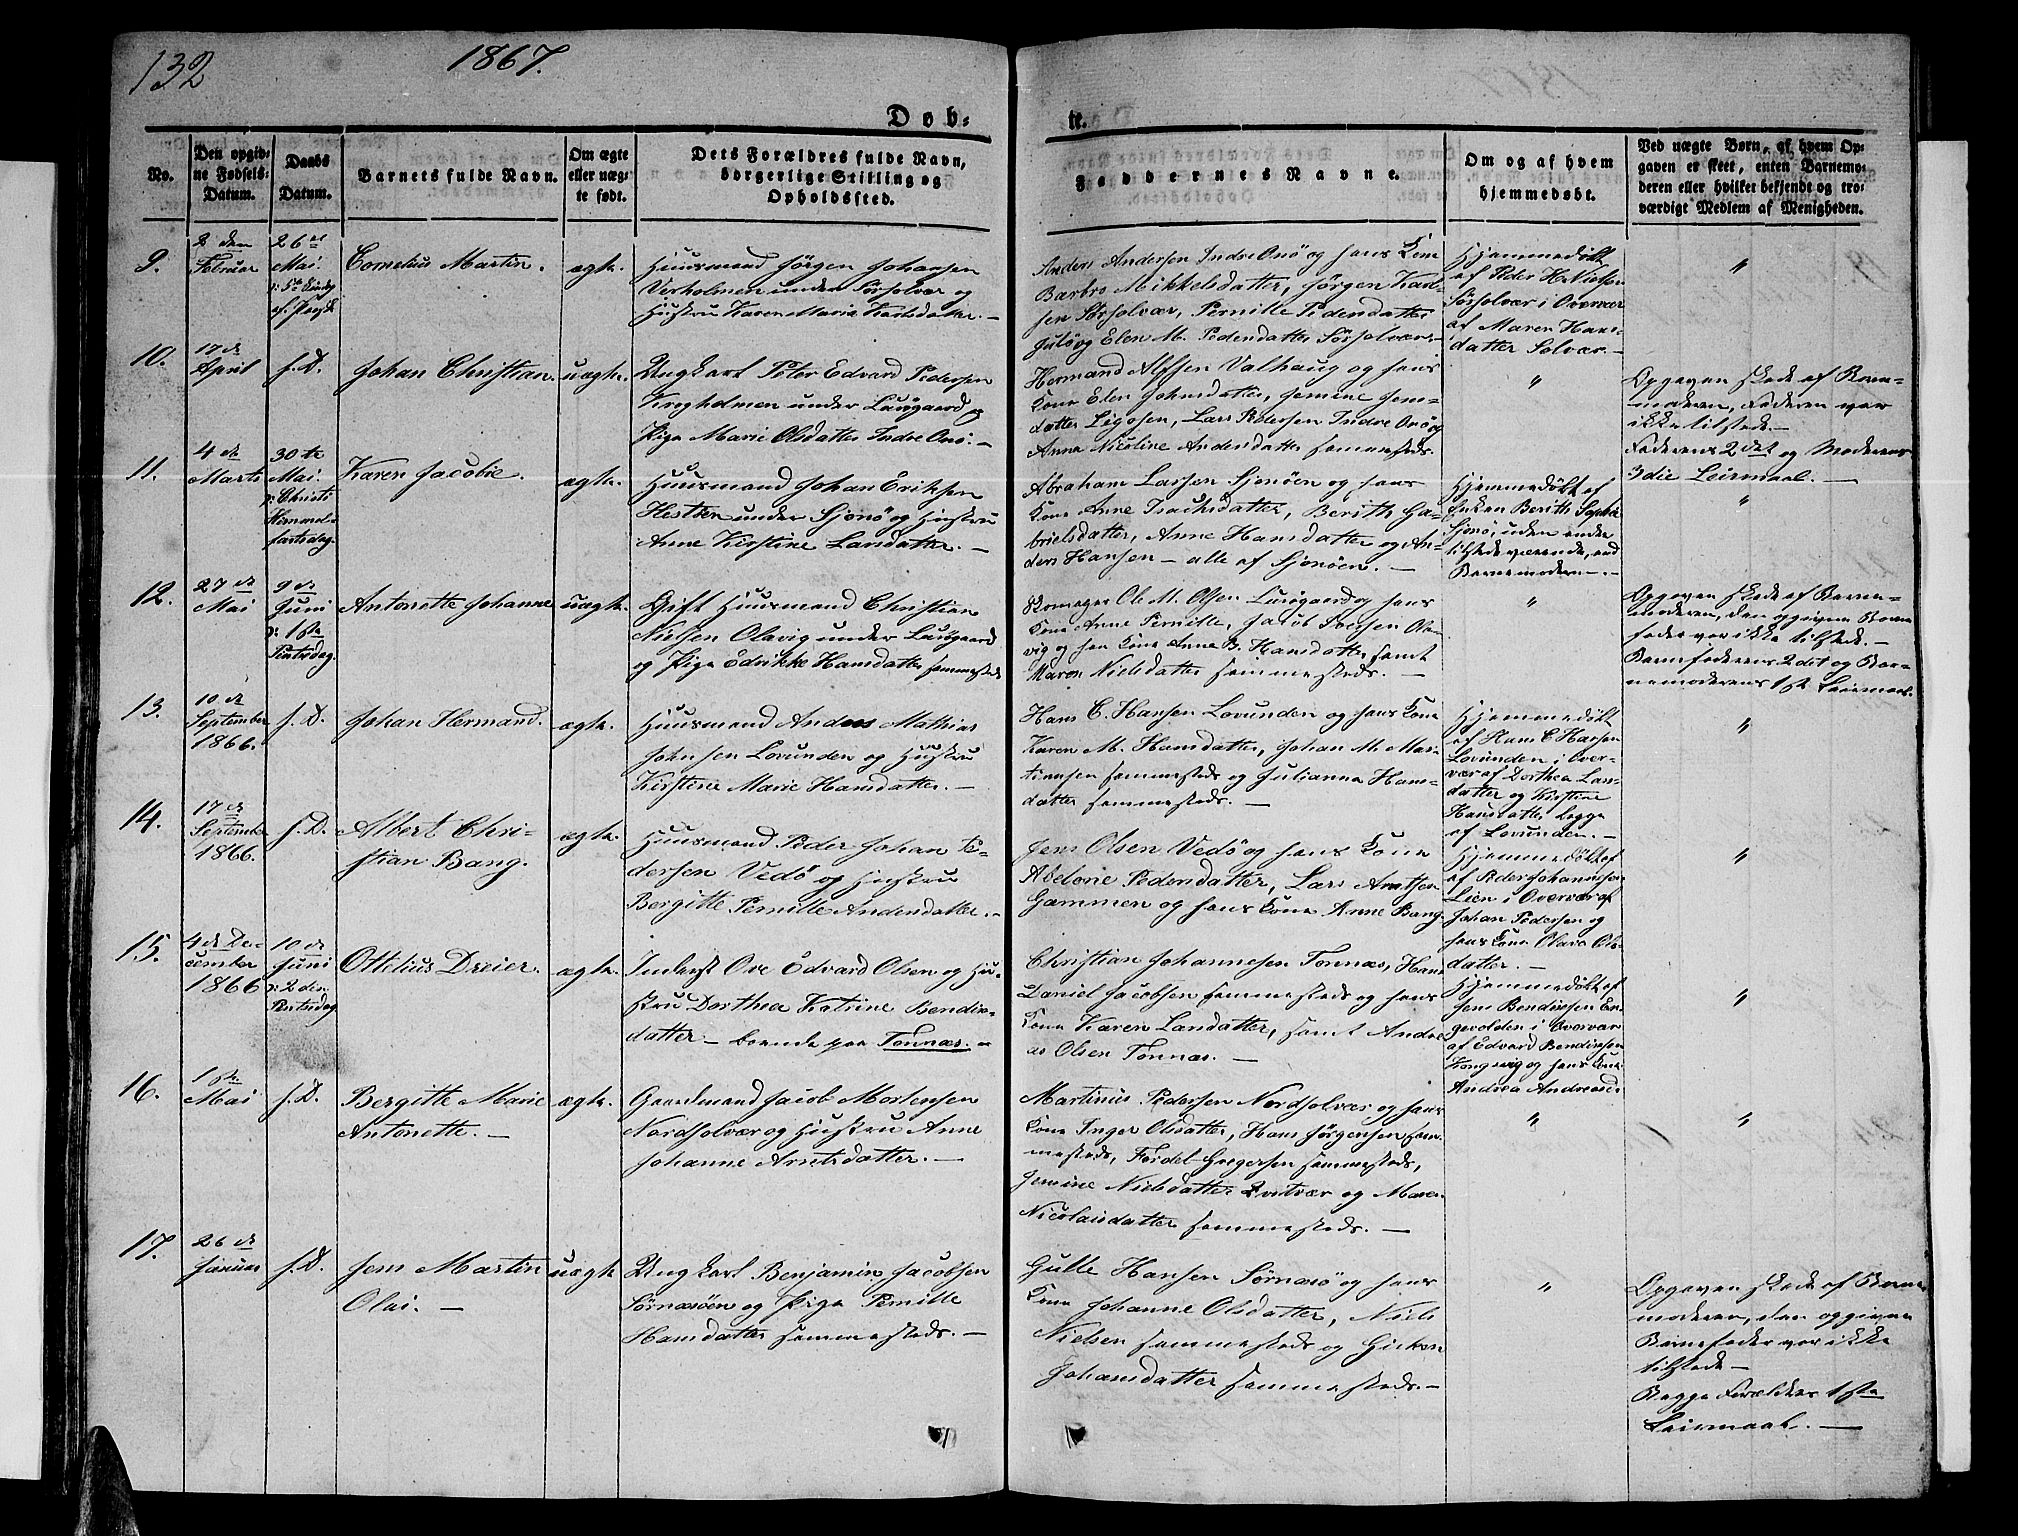 132
1867.
Døb-
te.
No.
Den opgid-
ne Fødsels-
Datum.
Daabs
Datum.
Barnets fulde Navn.
Om ægte
eller uæg-
te født.
Dets Forældres fulde Navn,
borgerlige Stilling og
Opholdssted.
Faddernes Navne.
Om og af hvem
hjemmedøbt.
Ved uægte Børn, af hvem Op-
gaven er skeet, enten Barnemo-
deren eller hvilket bekjendt og tro-
værdigt Medlem af Menigheden.
9.
2 den
Februar
26 de
Mai.
Cornelius Martin.
ægte.
Huusmand Jørgen Johansen
Verholmen under Sørsolvær og
Hustru Karen Maria Karlsdatter. —
Anders Andersen Indre Onø og hans Kone
Barbro Mikkelsdatter, Jørgen Karl-
sen Sørsolvær, Pernille Pedersdatter
og Elen M. Pedersdatter Sørsolvær. —
Hjemmedøbt
af Peder H. Nielsen
Sørsolvær i Overvær
af Maren Hans-
datter Solvær. —
"
10.
17 de
April
s. D.
Johan Christian.
uægte.
Ungkarl Peter Edvard Pedersen
Krogholmen under Lurøgaard og
Pige Marie Olsdatter Indre Onø. —
Hermand Alfsen Valhaug og hans
Kone Elen Johnsdatter, Jemine Jem-
datter Ligosen, Lars Pedersen Indre Onø og
Anna Nicoline Andersdatter sammesteds.
"
Opgaven skede af Barne-
moderen, Faderen var
ikke tilstede. —
Faderens 2det og Moderens
3die Leiermaal. —
11.
4 de
Marts
30 te
Mai.
Christi
Himmel-
fartsdag.
Karen Jacobie.
ægte.
Huusmand Johan Eriksen
Hestøen under Sjonø og Hustru
Anne Kirstine Larsdatter. —
Abraham Larsen Sjonøen og hans
Kone Anne Isachsdatter, Berith Ga-
brielsdatter, Anne Hansdatter og An-
ders Hansen — alle af Sjonøen. —
Hjemmedøbt af
Enken Berith Sophie
Sjonø, uden andre
tilstedeværende, end
Barnemoderen. —
"
12.
27 de
Mai
9 de
Juni
1ste
Pintsdag.
Antonette Johanne
uægte.
Gift Huusmand Christian
Nielsen Olavig under Lurøgaard
og Pige Edvikke Hansdatter sammesteds
Skomager Ole M. Olsen Lurøgaard og hans
Kone Anne Pernille, Jacob Iversen Ola-
vig og hans Kone Anne B. Hansdatter samt
Maren Nielsdatter sammesteds. —
"
Opgaven skede af Barne-
moderen, den opgivne Barne-
fader var ikke tilstede. —
Barnefaderens 2det og Bar-
nemoderens 1ste Leiermaal.
13.
10 de
September
1866.
s. D.
Johan Hermand.
ægte.
Huusmand Anders Mathias
Johnsen Lovunden og Hustru
Kirstine Marie Hansdatter. —
Hans C. Hansen Lovunden og hans Kone
Karen M. Hansdatter, Johan M. Mar-
tinusen sammesteds og Julianna Hans-
datter sammesteds. —
Hjemmedøbt
af Hans C Hansen
Lovunden i Over-
vær af Dorthea Lars-
datter og Kirstine
Hansdatter begge
af Lovunden. —
"
14.
17 de
September
1866.
s. D.
Albert Chri-
stian Bang.
ægte.
Huusmand Peder Johan Pe-
dersen Vedø og Hustru
Bergitte Pernille Andersdatter. —
Jens Olsen Vedø og hans Kone
Abelone Pedersdatter, Lars Arntsen
Gammen og hans Kone Anne Bang.
Hjemmedøbt af
af Peder Johannesen
Lien i Overvær af
Johan Pedersen og
hans Kone Olava Ols-
datter. —
"
15.
4 de De-
cember
1866
10 de
Juni
2 den
Pintsdag
Ottelius Dreier.
ægte.
Inderst Ove Edvard Olsen og Hu-
stru Dorthea Katrine Bendiks-
datter — boende paa Tonnæs. —
Christian Johannesen Tonnæs, Hans
Daniel Jacobsen sammesteds og hans
Kone Karen Larsdatter, samt Andre-
as Olsen Tonnæs. —
Hjemmedøbt af
Jens Bendixsen En-
gevolden i Overvær
af Edvard Bendixsen
Kongsvig og hans Kone
Andrea Andreasd.
"
16.
1ste
Mai
s. D.
Bergitte Marie
Antonette. —
ægte.
Gaardmand Jacob Mortensen
Nordsolvær og Hustru Anne
Johanne Arntsdatter. —
Martinus Pedersen Nordsolvær og hans
Kone Inger Olsdatter, Hans Jørgensen sam-
mesteds, Fordel Gregersen sammesteds,
Jemine Nielsdatter Kvitvær og Maren
Nicolaisdatter sammesteds. —
"
"
17.
26 de
Januar
s. D.
Jens Martin
Olai. —
uægte
Ungkarl Benjamin Jacobsen
Sørnæsøen og Pige Pernille
Hansdatter sammesteds. —
Gulle Hansen Sørnæsø og hans
Kone Johanne Olsdatter, Niels
Nielsen sammesteds og
Johansdatter sammesteds. —
"
Opgaven skede af Barne-
moderen, den opgivne
Barnefader var ikke
tilstede —
Begge Forældres 1ste
Leiermaal. —